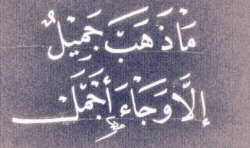 مَا ذَهَبَ جَمِيْلٌ
إِلَّا وَجَاءَ أَجْمَلُ